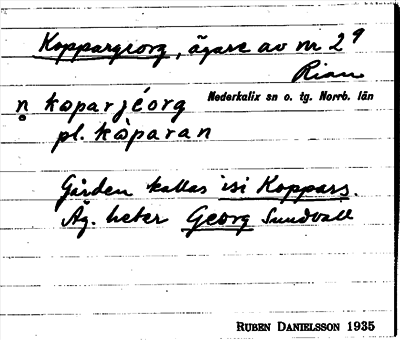 Koppargeorg, ägare av nr 2⁹
Rian
Nederkalix sn o. tg. Norrb. län
n̥ koparjéorg
pl. kòparan
Gården kallas isi Koppars.
Äg. heter Georg Sundvall
RUBEN DANIELSSON 1935